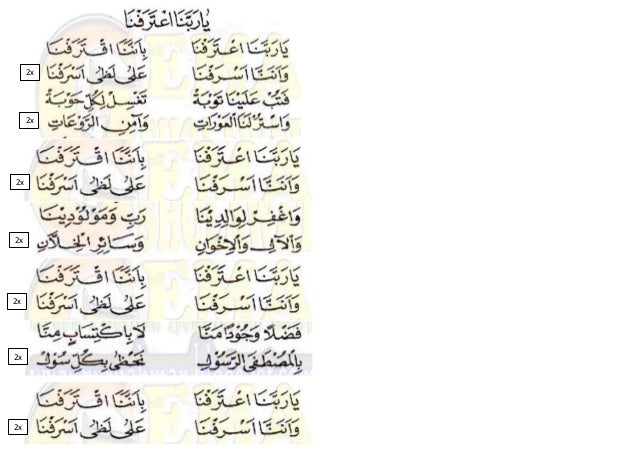 يَارَبَّنَا اعْتَرَفْنَا
يَارَبَّنَا اعْتَرَفْنَا بِاَنَّنَا اقْتَرَفْنَا
وَاَنَّنَا اَسْرَفْنَا عَلٰى لَظٰى اَشْرَفْنَا 2x
فَتُبْ عَلَيْنَا تَوْبَةً تَغْسِلُ لِكُلِّ حَوْبَةً
وَاسْتُرْ لَنَا الْعَوْرَاتِ وَآمِنِ الرَّوْعَاتِ 2x
يَارَبَّنَا اعْتَرَفْنَا بِاَنَّنَا اقْتَرَفْنَا
وَاَنَّنَا اَسْرَفْنَا عَلٰى لَظٰى اَشْرَفْنَا 2x
وَاغْفِرْ لِوَالِدِيْنَا رَبِّ وَمَوْلُوْدِيْنَا
وَالْآلِ وَالْاِخْوَانِ وَسَائِرِ الْخِلَّانِ 2x
يَارَبَّنَا اعْتَرَفْنَا بِاَنَّنَا اقْتَرَفْنَا
وَاَنَّنَا اَسْرَفْنَا عَلٰى لَظٰى اَشْرَفْنَا 2x
فَضْلًا وَجُوْدًا مَنَّا لَا بِاكْتِسَابٍ مِنَّا
بِالْمُصْطَفَى الرَّسُوْلِ نَحْظٰى بِكُلِّ سُوْلِ 2x
يَارَبَّنَا اعْتَرَفْنَا بِاَنَّنَا اقْتَرَفْنَا
وَاَنَّنَا اَسْرَفْنَا عَلٰى لَظٰى اَشْرَفْنَا 2x